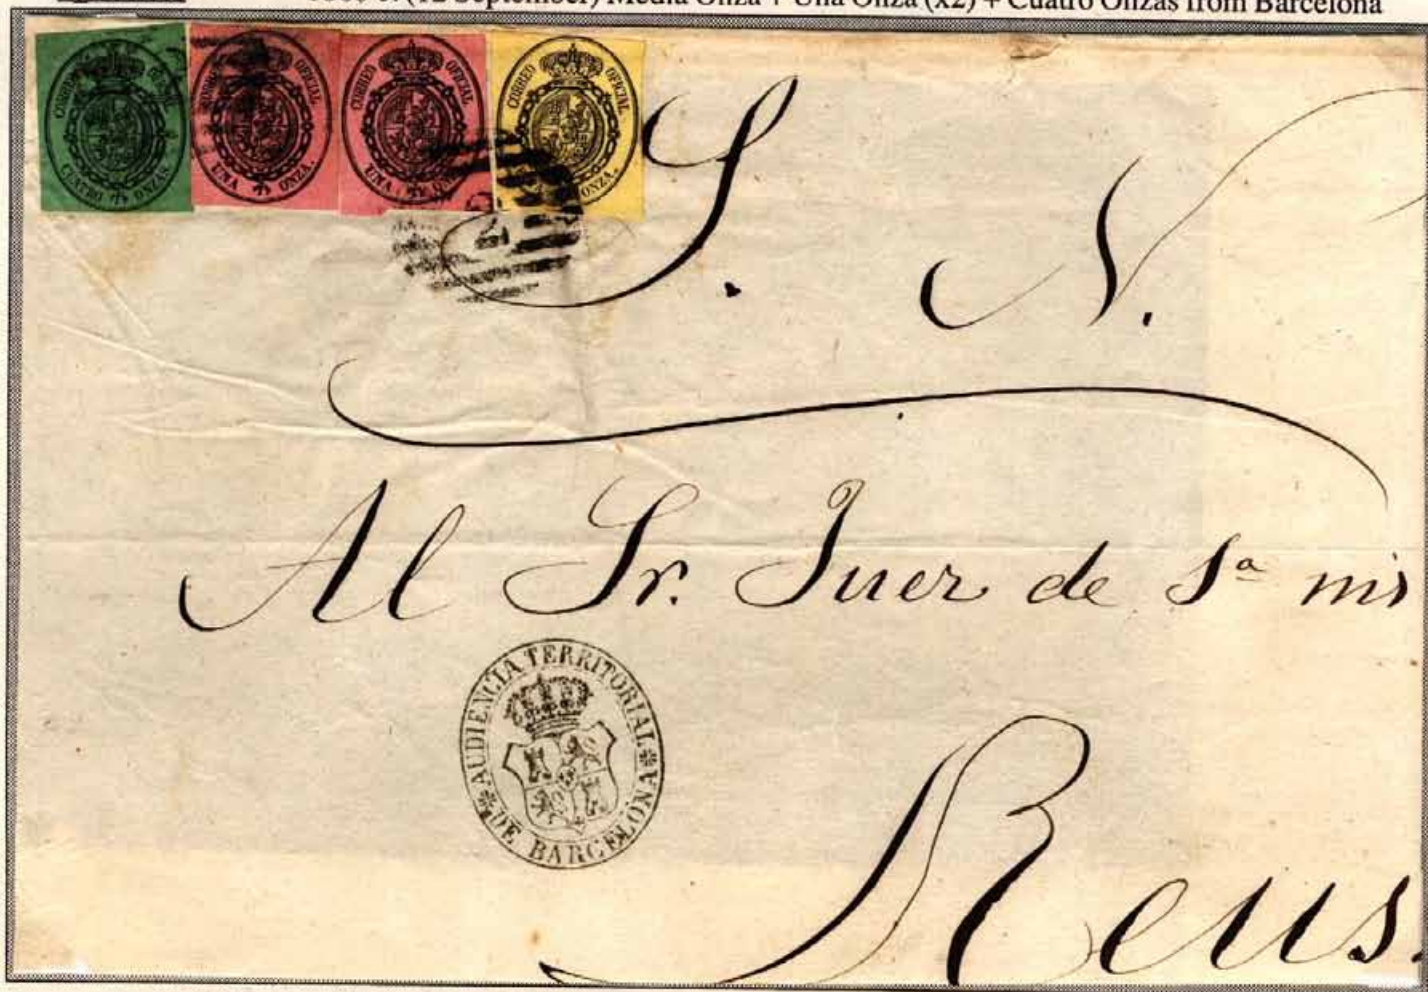 (12 September) Media Onza + Una Onza (x2) + Cuatro Onzas from Barcelona
CORREO OFICIAL
CUATRO ONZAS.
CORREO OFICIAL
UNA ONZA.
CORREO OFICIAL
UNA
CORREO OFICIAL
ONZA.
2
S. N.
Al Sr. Juez de 1ª
AUDIENCIA TERRITORIAL
DE BARCELONA
Reus.